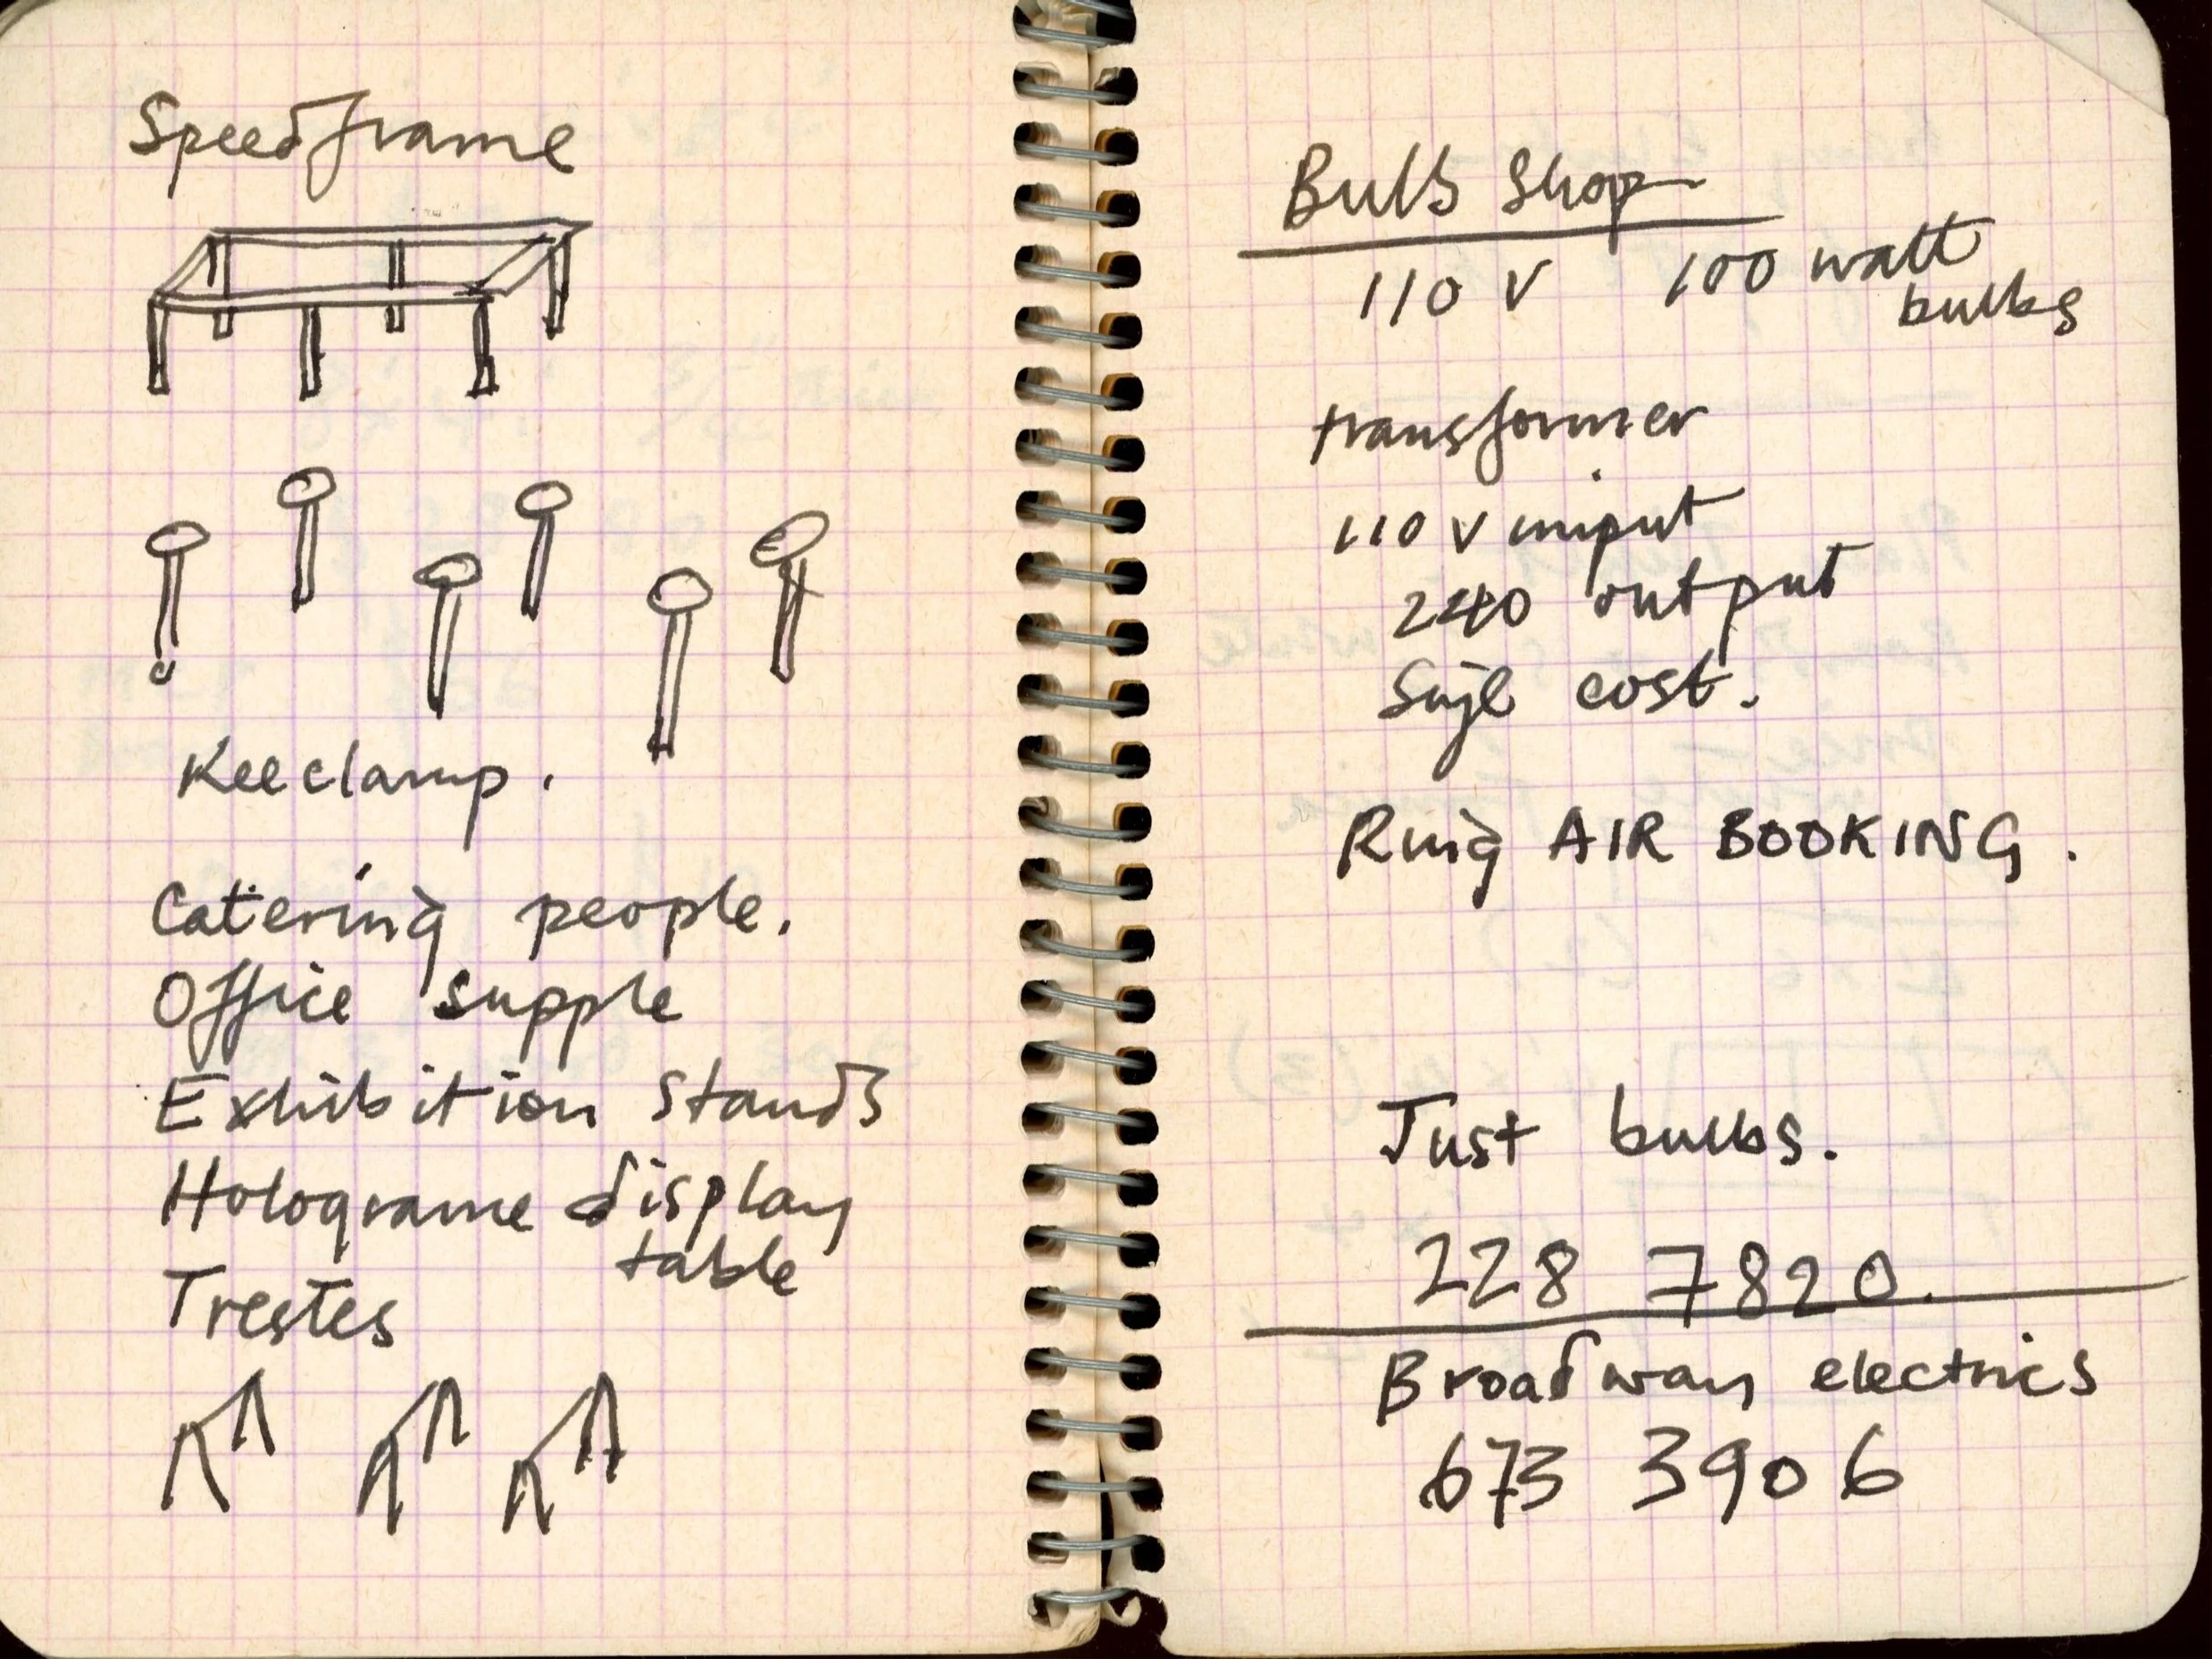 Speedframe
Keeclamp.
Catering people.
Office supple
Exhibition stands
Holograme display
table
Trestes
Bulb Shop
110 V 100 watt
bulbs
transformer
110 V input
240 output
cost.
Ring AIR BOOKING.
Just bulbs.
228 7820.
Broadway electrics
673 3906